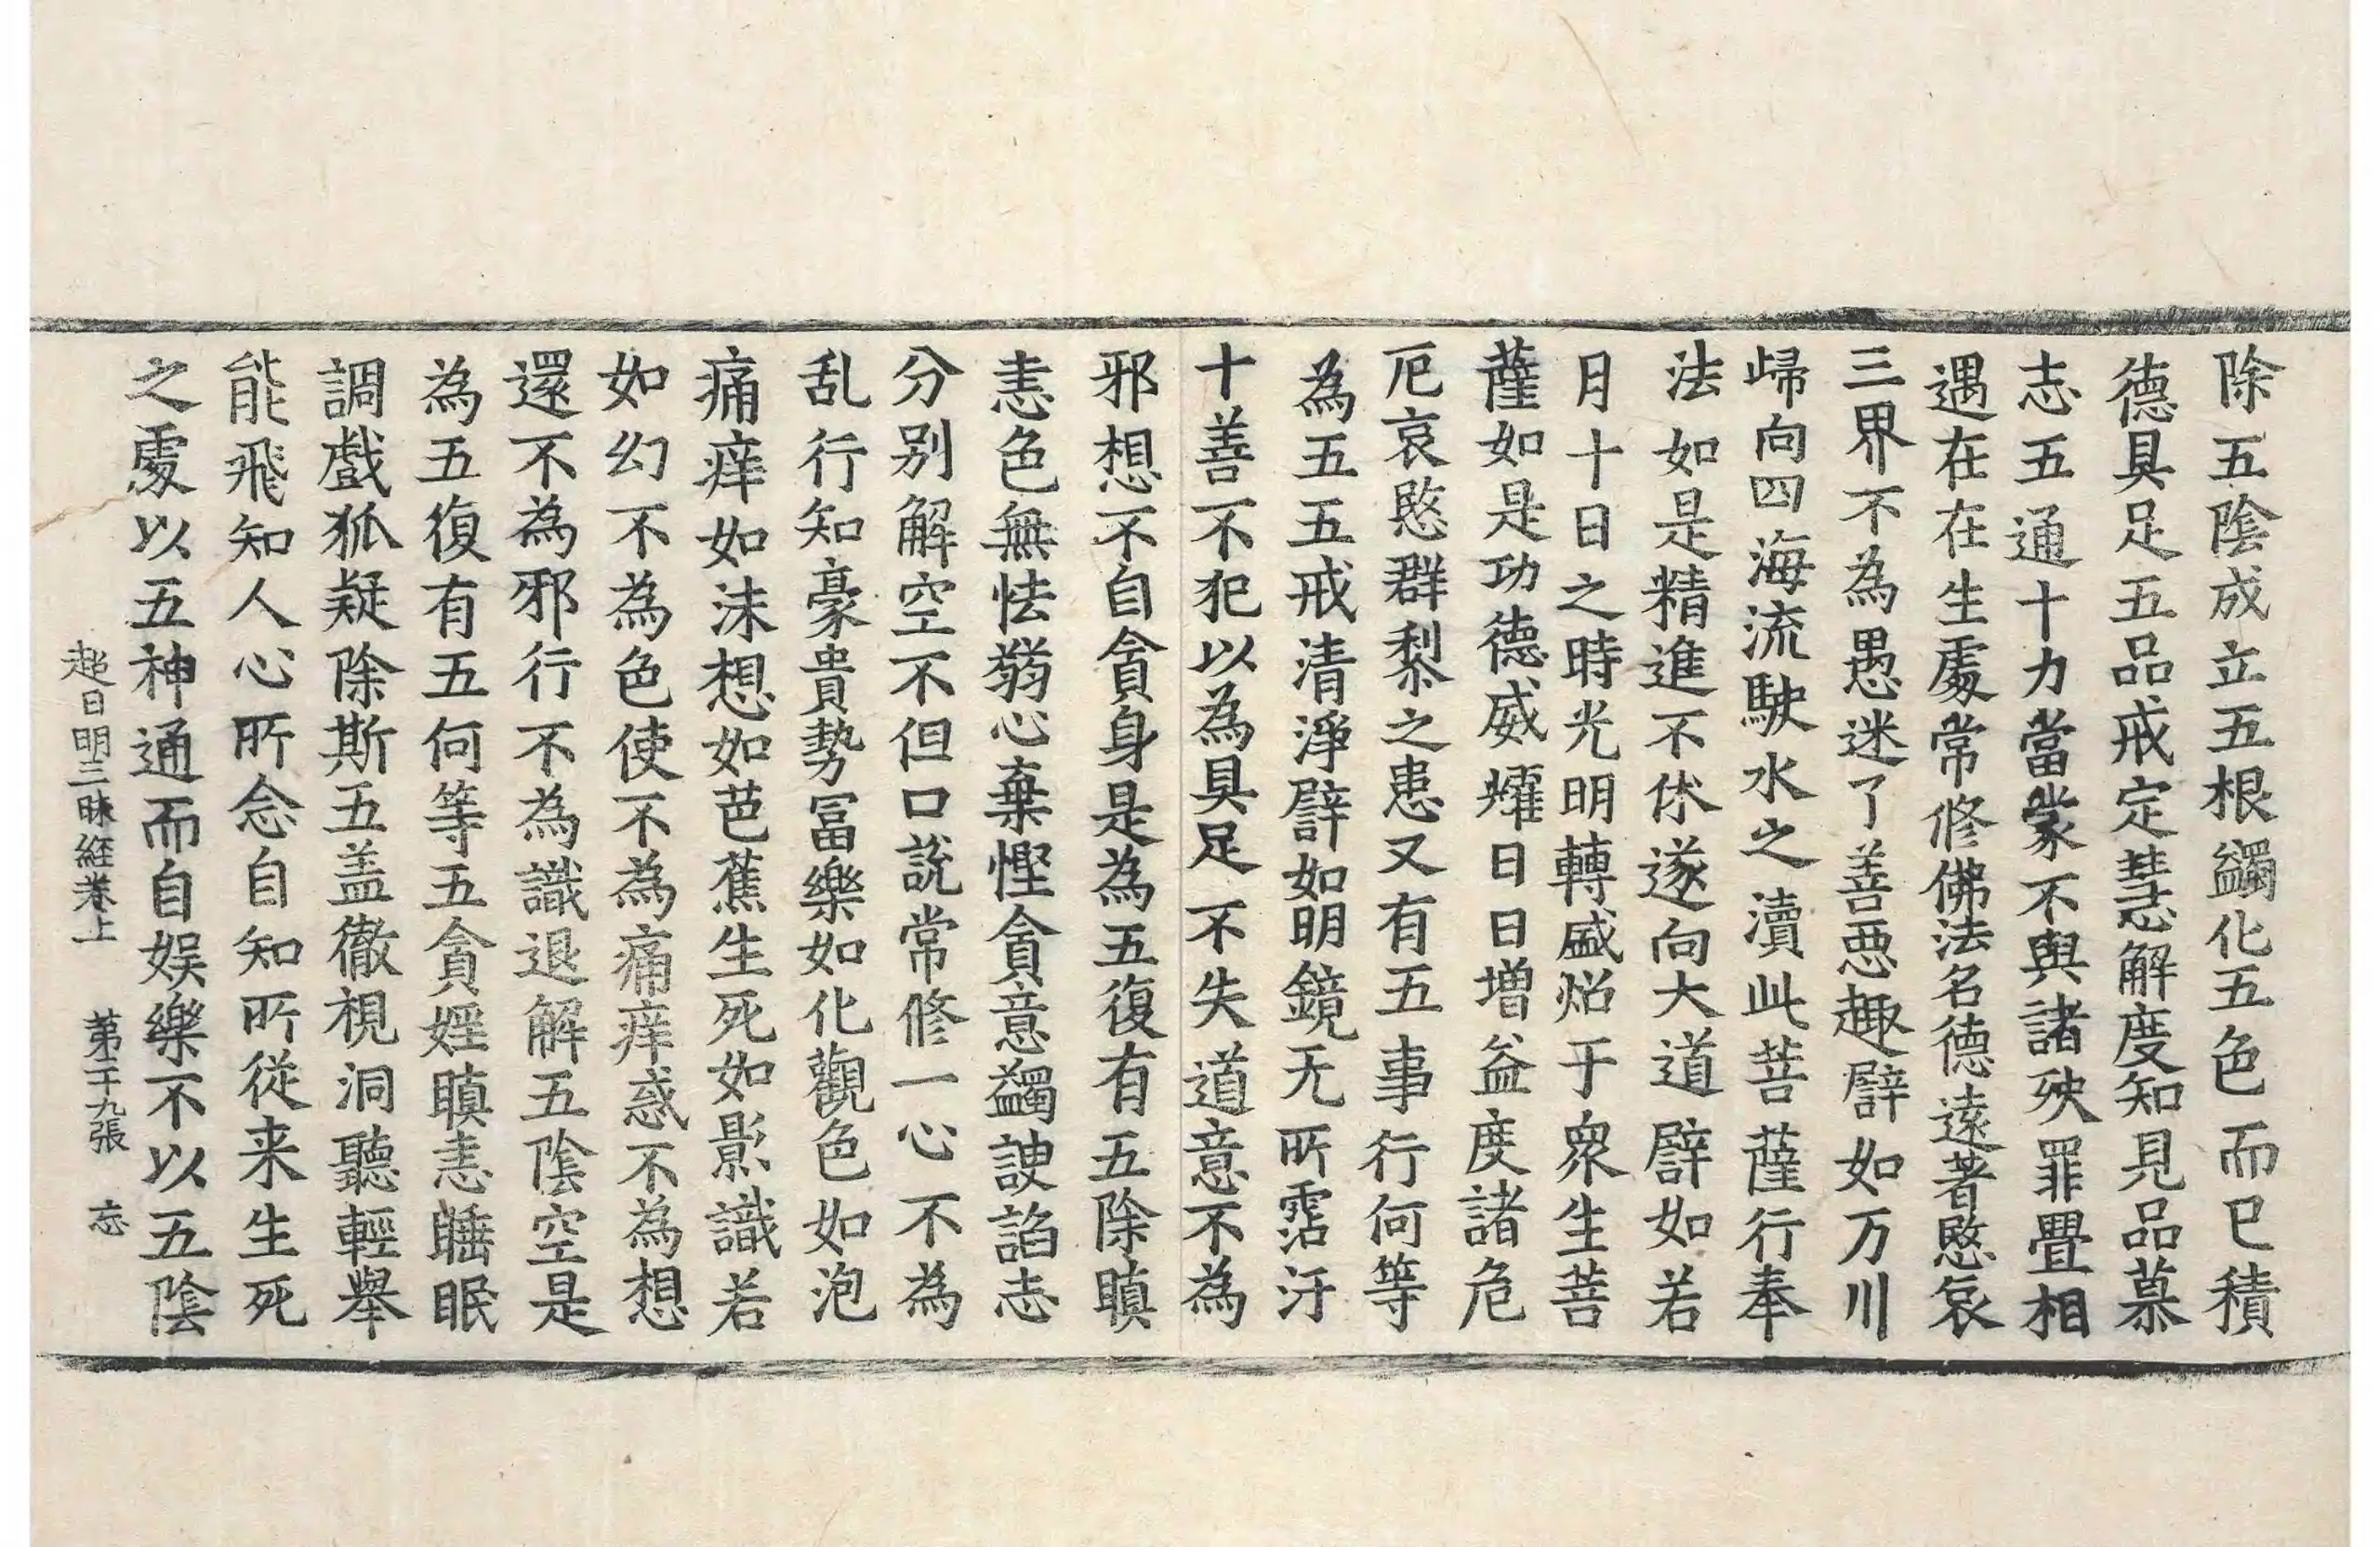 除五陰成立五根蠲化五色而已積
德具足五品戒定慧解度知見品慕
志五通十力當蒙不與諸殃罪疊相
遇在在生處常修佛法名德遠著愍哀
三界不為愚迷了善惡趣譬如万川
歸向四海流駛水之瀆此菩薩行奉
法如是精進不休遂向大道譬如若
月十日之時光明轉盛炤于衆生菩
薩如是功德威燿日日增益度諸危
厄哀愍群黎之患又有五事行何等
為五五戒清淨譬如明鏡无所霑汙
十善不犯以為具足不失道意不為
邪想不自貪身是為五復有五除瞋
恚色無怯弱心棄慳貪意蠲諛諂志
分別解空不但口說常修一心不為
乱行知豪貴勢冨樂如化觀色如泡
痛痒如沫想如芭蕉生死如影識若
如幻不為色使不為痛痒惑不為想
還不為邪行不為識退解五陰空是
為五復有五何等五貪婬瞋恚睡眠
調戲狐疑除斯五盖徹視洞聽輕舉
能飛知人心所念自知所從来生死
之處以五神通而自娱樂不以五陰
超日明三昧経卷上　第十九張　忘